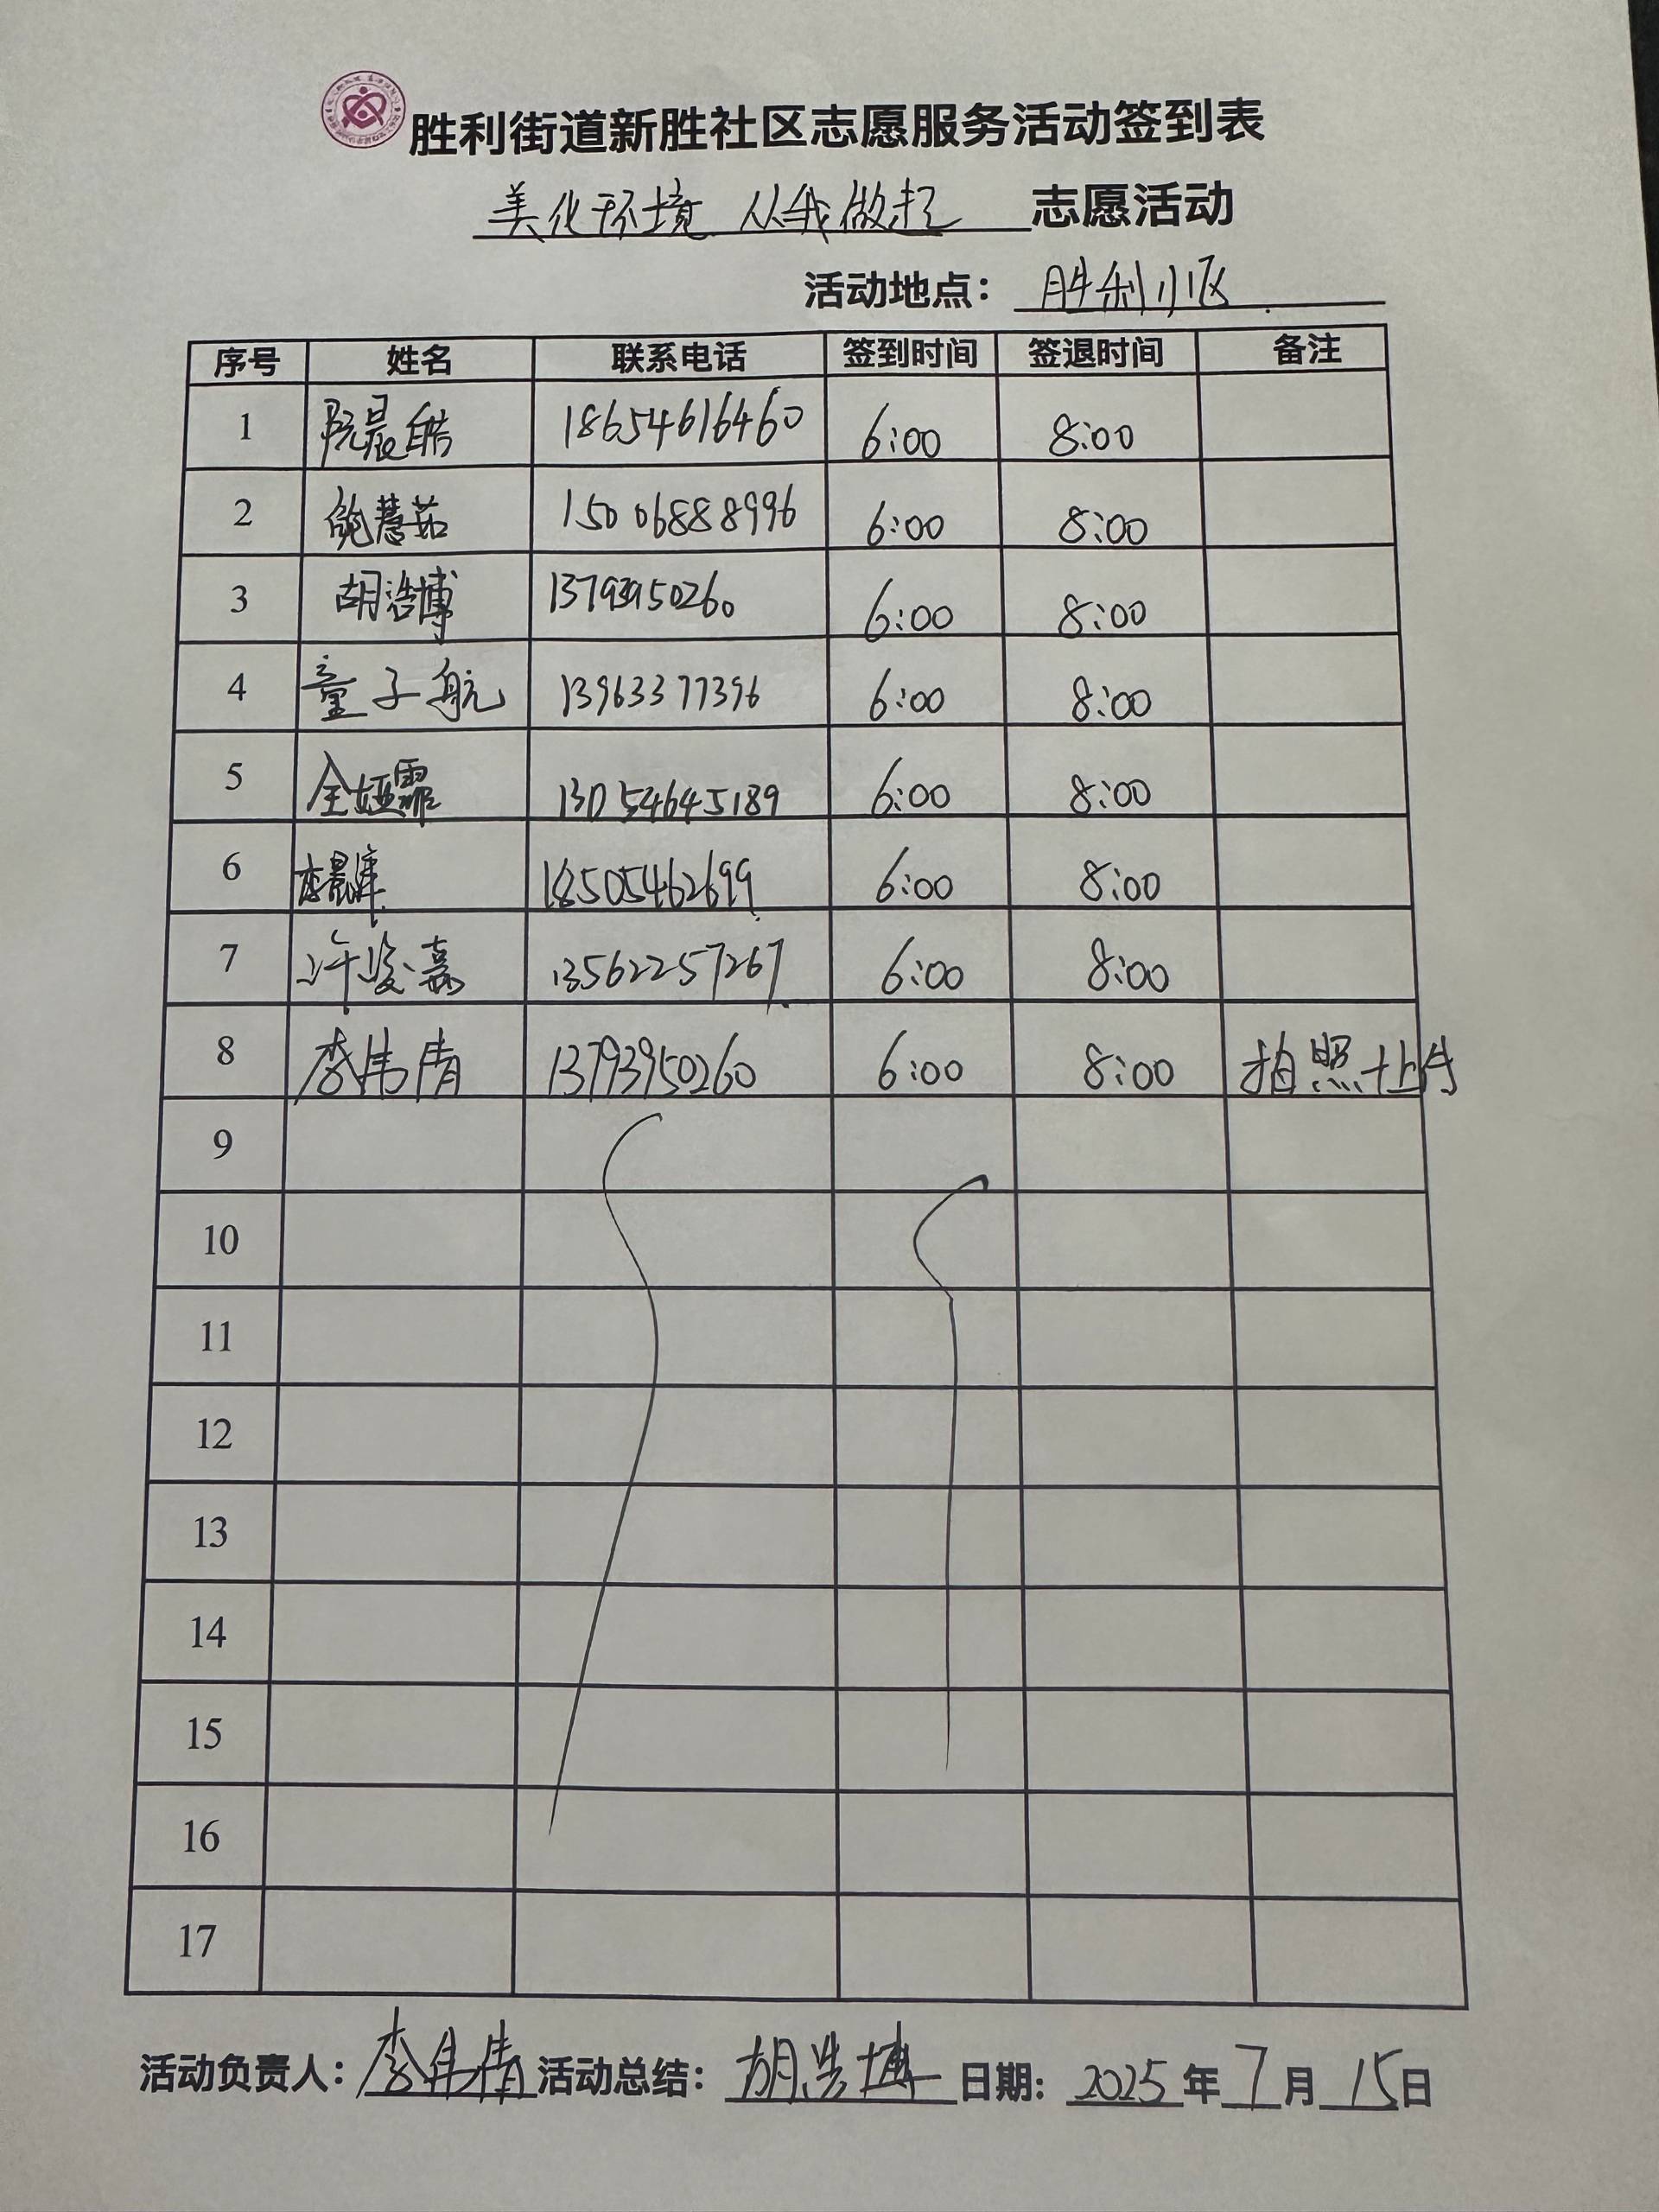 胜利街道新胜社区志愿服务活动签到表
美化环境 从我做起 志愿活动
活动地点： 胜利小区
序号 姓名 联系电话 签到时间 签退时间 备注
1 阮晨皓 18654616460 6:00 8:00
2 鲍慧茹 15006888996 6:00 8:00
3 胡浩博 13793950260 6:00 8:00
4 童子航 13963377396 6:00 8:00
5 全娅霏 13054645189 6:00 8:00
6 李晨 18505462699 6:00 8:00
7 许峻嘉 13562257267 6:00 8:00
8 李伟倩 13793950260 6:00 8:00 拍照+上传
9
10
11
12
13
14
15
16
17
活动负责人： 李伟倩 活动总结： 胡浩博 日期： 2025 年 7 月 15 日